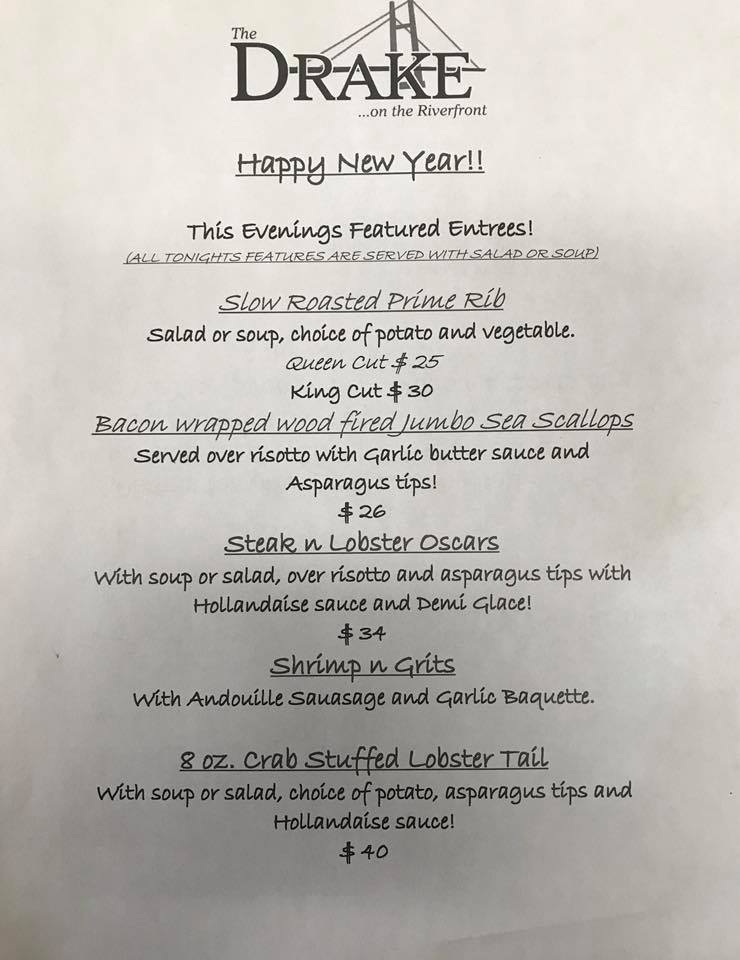 The
DRAKE
...on the Riverfront
Happy New Year!!
This Evenings Featured Entrees!
(ALL TONIGHTS FEATURES ARE SERVED WITH SALAD OR SOUP)
Slow Roasted Prime Rib
Salad or soup, choice of potato and vegetable.
Queen Cut $ 25
King Cut $ 30
Bacon wrapped wood fired Jumbo Sea Scallops
Served over risotto with Garlic butter sauce and
Asparagus tips!
$ 26
Steak n Lobster Oscars
With soup or salad, over risotto and asparagus tips with
Hollandaise sauce and Demi Glace!
$ 34
Shrimp n Grits
With Andouille Sauasage and Garlic Baquette.
8 oz. Crab Stuffed Lobster Tail
With soup or salad, choice of potato, asparagus tips and
Hollandaise sauce!
$ 40